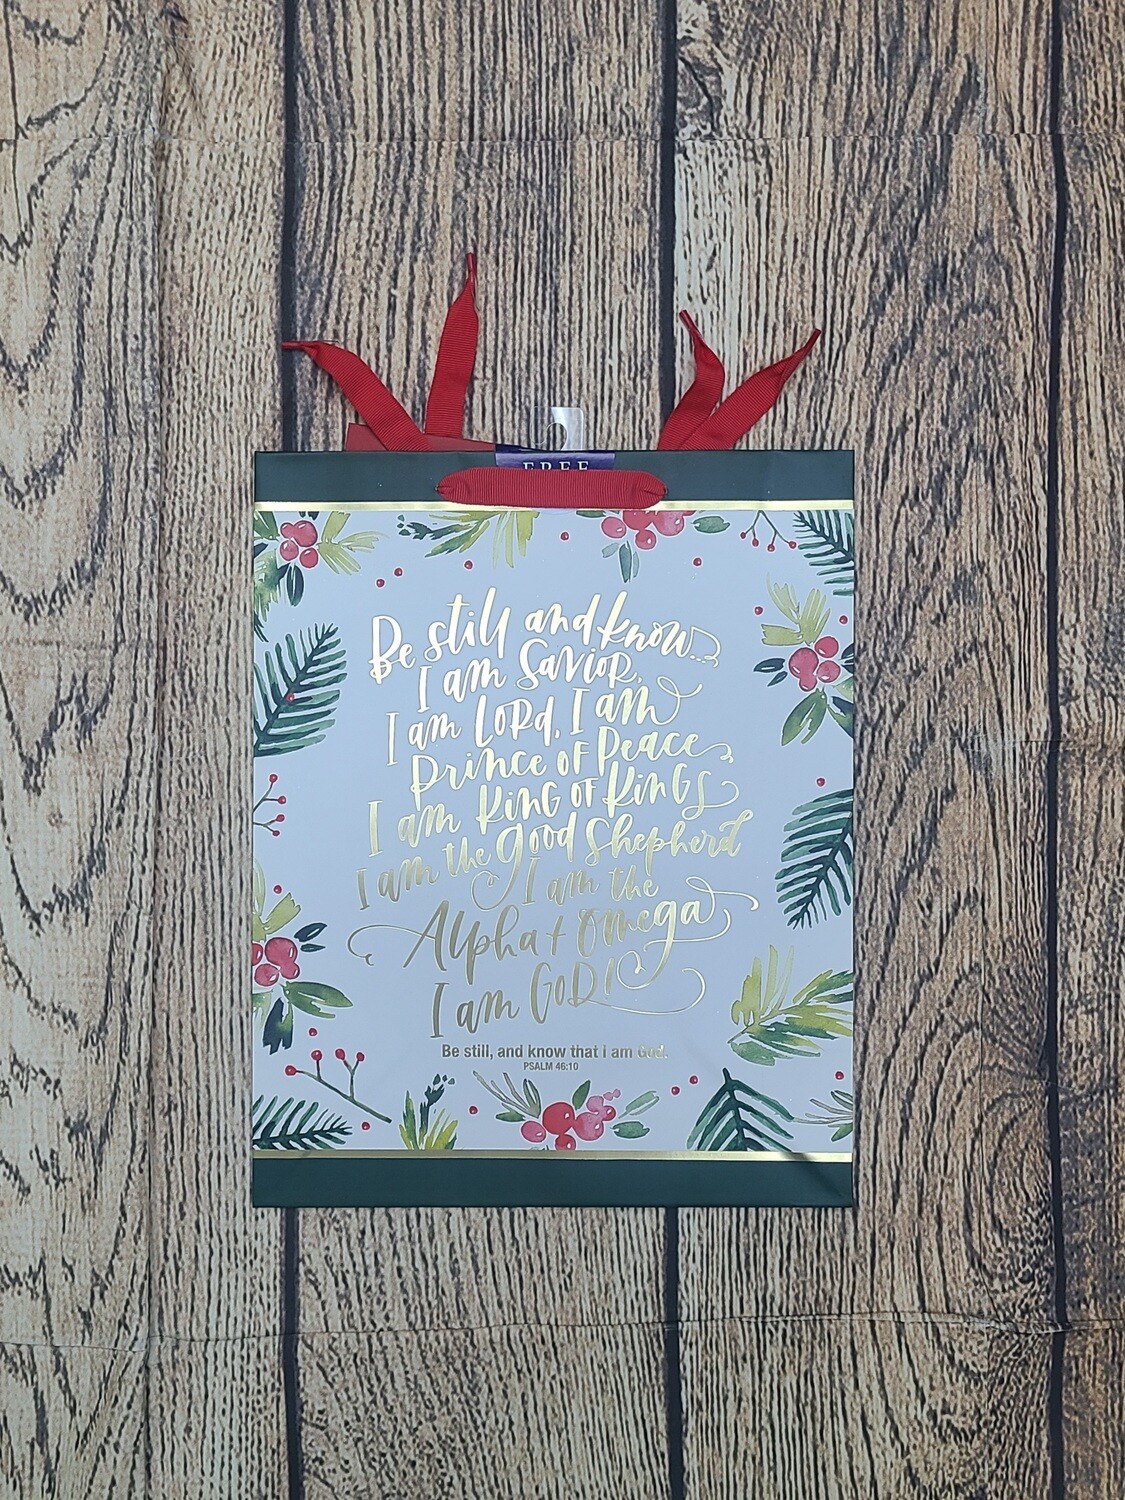 FREE
Be still and know...
I am Savior,
I am Lord, I am
Prince of Peace
I am King of Kings
I am the Good Shepherd
I am the
Alpha + Omega
I am God!
Be still, and know that i am God.
PSALM 46:10